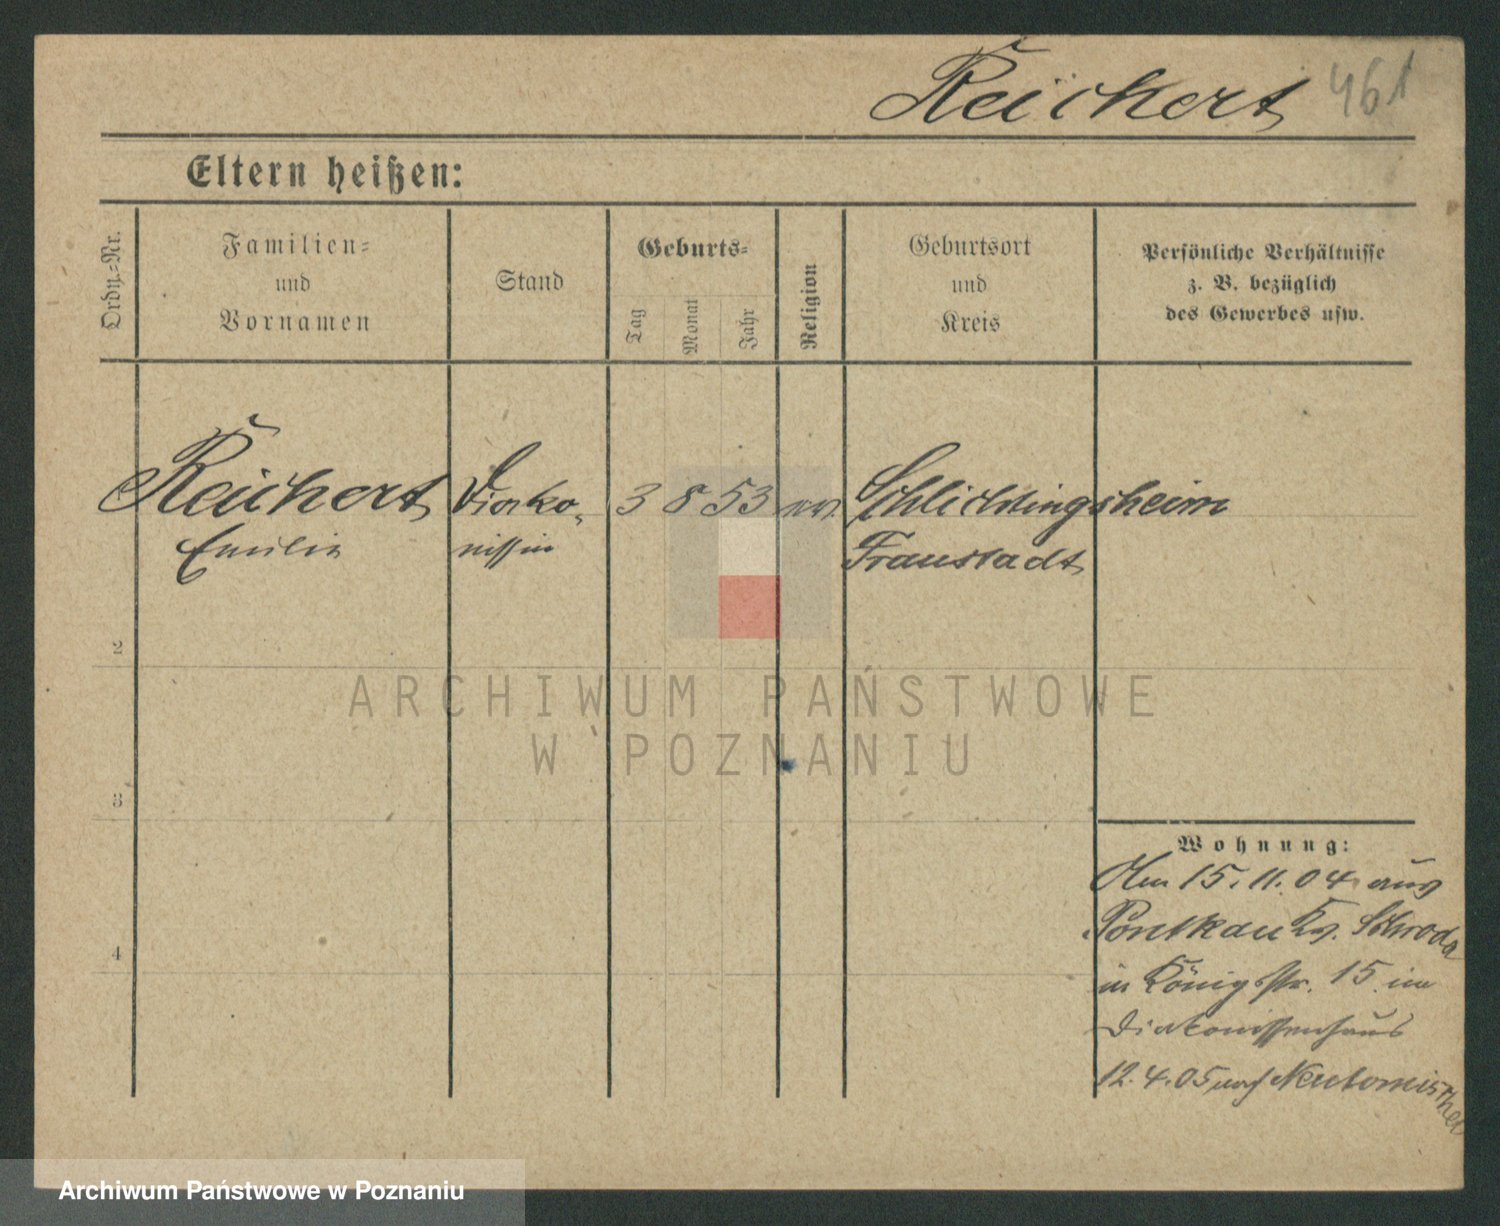 Reichert 461
Eltern heißen:
Ordn.=Nr.
Familien=
und
Vornamen
Stand
Geburts=
Tag
Monat
Jahr
Religion
Geburtsort
und
Kreis
Persönliche Verhältnisse
z. B. bezüglich
des Gewerbes usw.
Reichert Diako- 3 8 53 ev. Schlichtingsheim
Emilie nissin Fraustadt
2
3
4
ARCHIWUM PAŃSTWOWE
W POZNANIU
Wohnung:
Am 15. 11. 04 aus
Pontkau Kr. Schroda
in Königstr. 15 im
Diakonissenhaus
12. 4. 05 nach Neutomischel
Archiwum Państwowe w Poznaniu